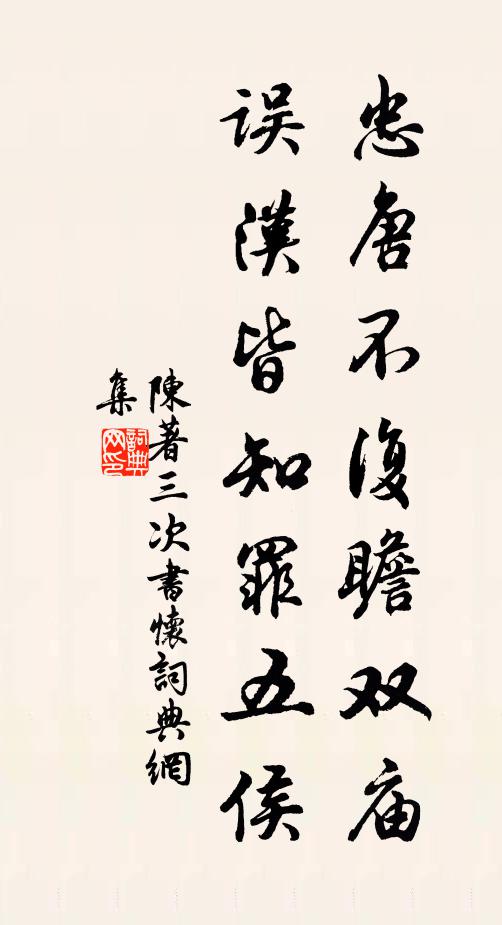 忠唐不復瞻双庙
误漢皆知罪五侯
陳著三次書懷詞典網
集
詞典網印